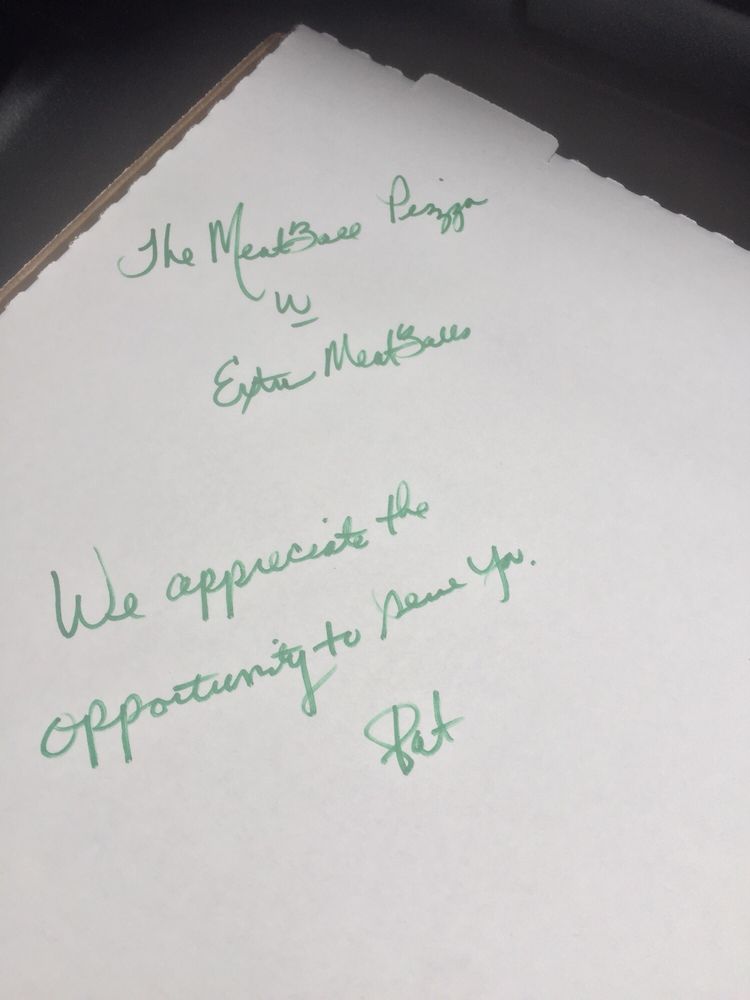 The MeatBall Pizza
W
Extra MeatBalls
We appreciate the
opportunity to serve You.
Pat